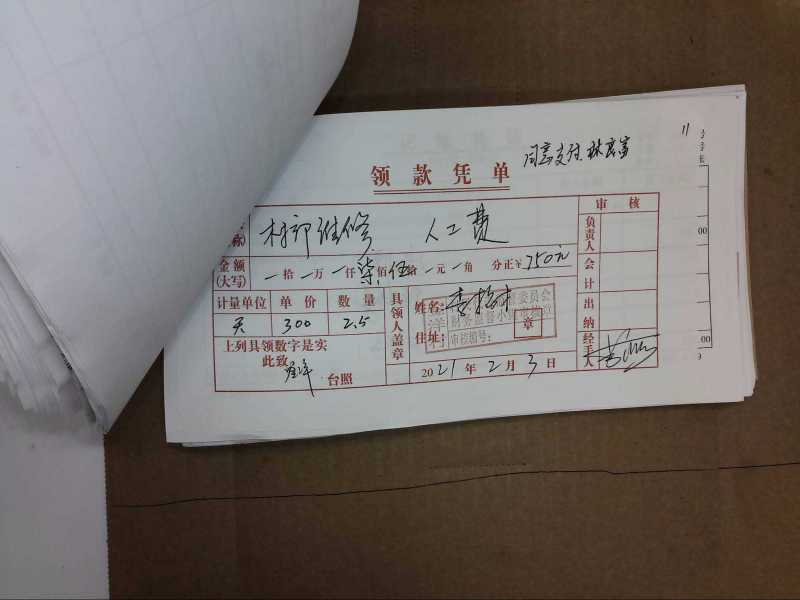 同意支付 林
11
领款凭单
村部维修 人工费
审核
金额
(大写)
一拾一万一仟柒佰伍拾一元一角 分正¥750元
计量单位 单价 数量
天 300 2.5
上列具领数字是实
此致
台照
具领人盖章
姓名:李
住址:
委员会
财务监督小组审核章
审核编号:
2021年2月3日
负责人
会计
出纳
经手人
00
00